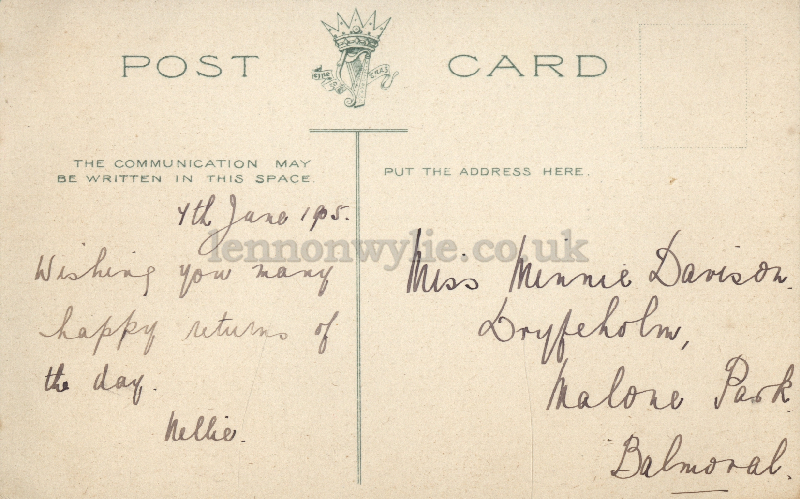 POST CARD
THE COMMUNICATION MAY
BE WRITTEN IN THIS SPACE.
PUT THE ADDRESS HERE.
4th June 1905.
Wishing you many
happy returns of
the day.
Nellie.
Miss Minnie Davison.
Dryfeholm,
Malone Park
Balmoral.
lennonwylie.co.uk